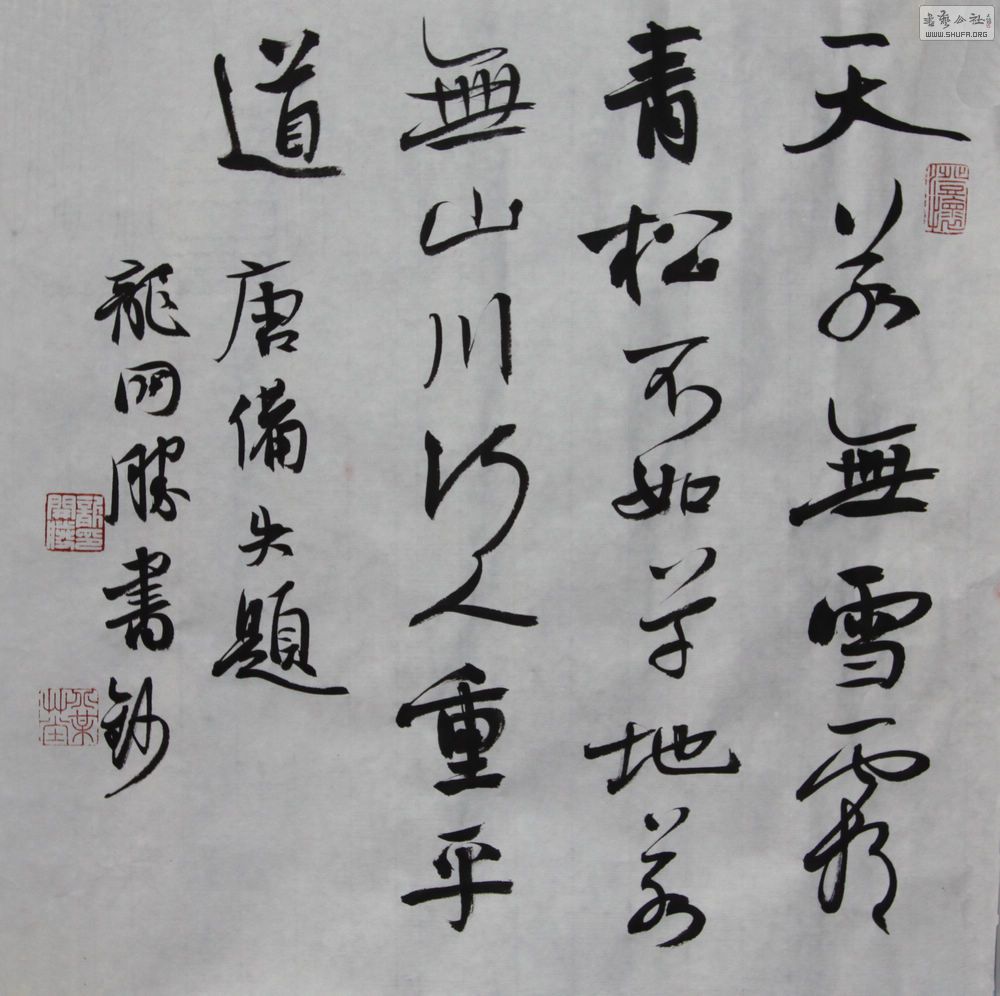 天若無雪霜
青松不如草地若
無山川何人重平
道 唐備失題
龍開勝書鈔
澄懷
書藝公社
WWW.SHUFA.ORG